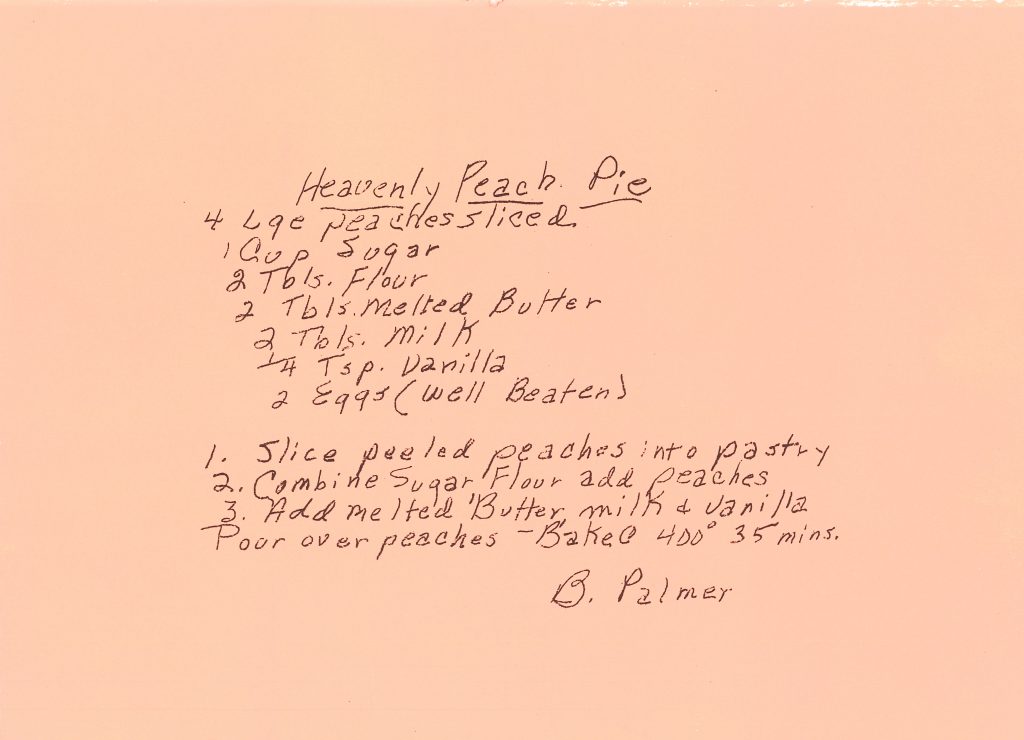 Heavenly Peach Pie
4 Lge peaches sliced.
1 Cup Sugar
2 Tbls. Flour
2 Tbls. Melted Butter
2 Tbls. Milk
1/4 Tsp. Vanilla
2 Eggs (Well Beaten)
1. Slice peeled peaches into pastry
2. Combine Sugar Flour add peaches
3. Add melted Butter, milk & vanilla
Pour over peaches - Bake @ 400° 35 mins.
B. Palmer